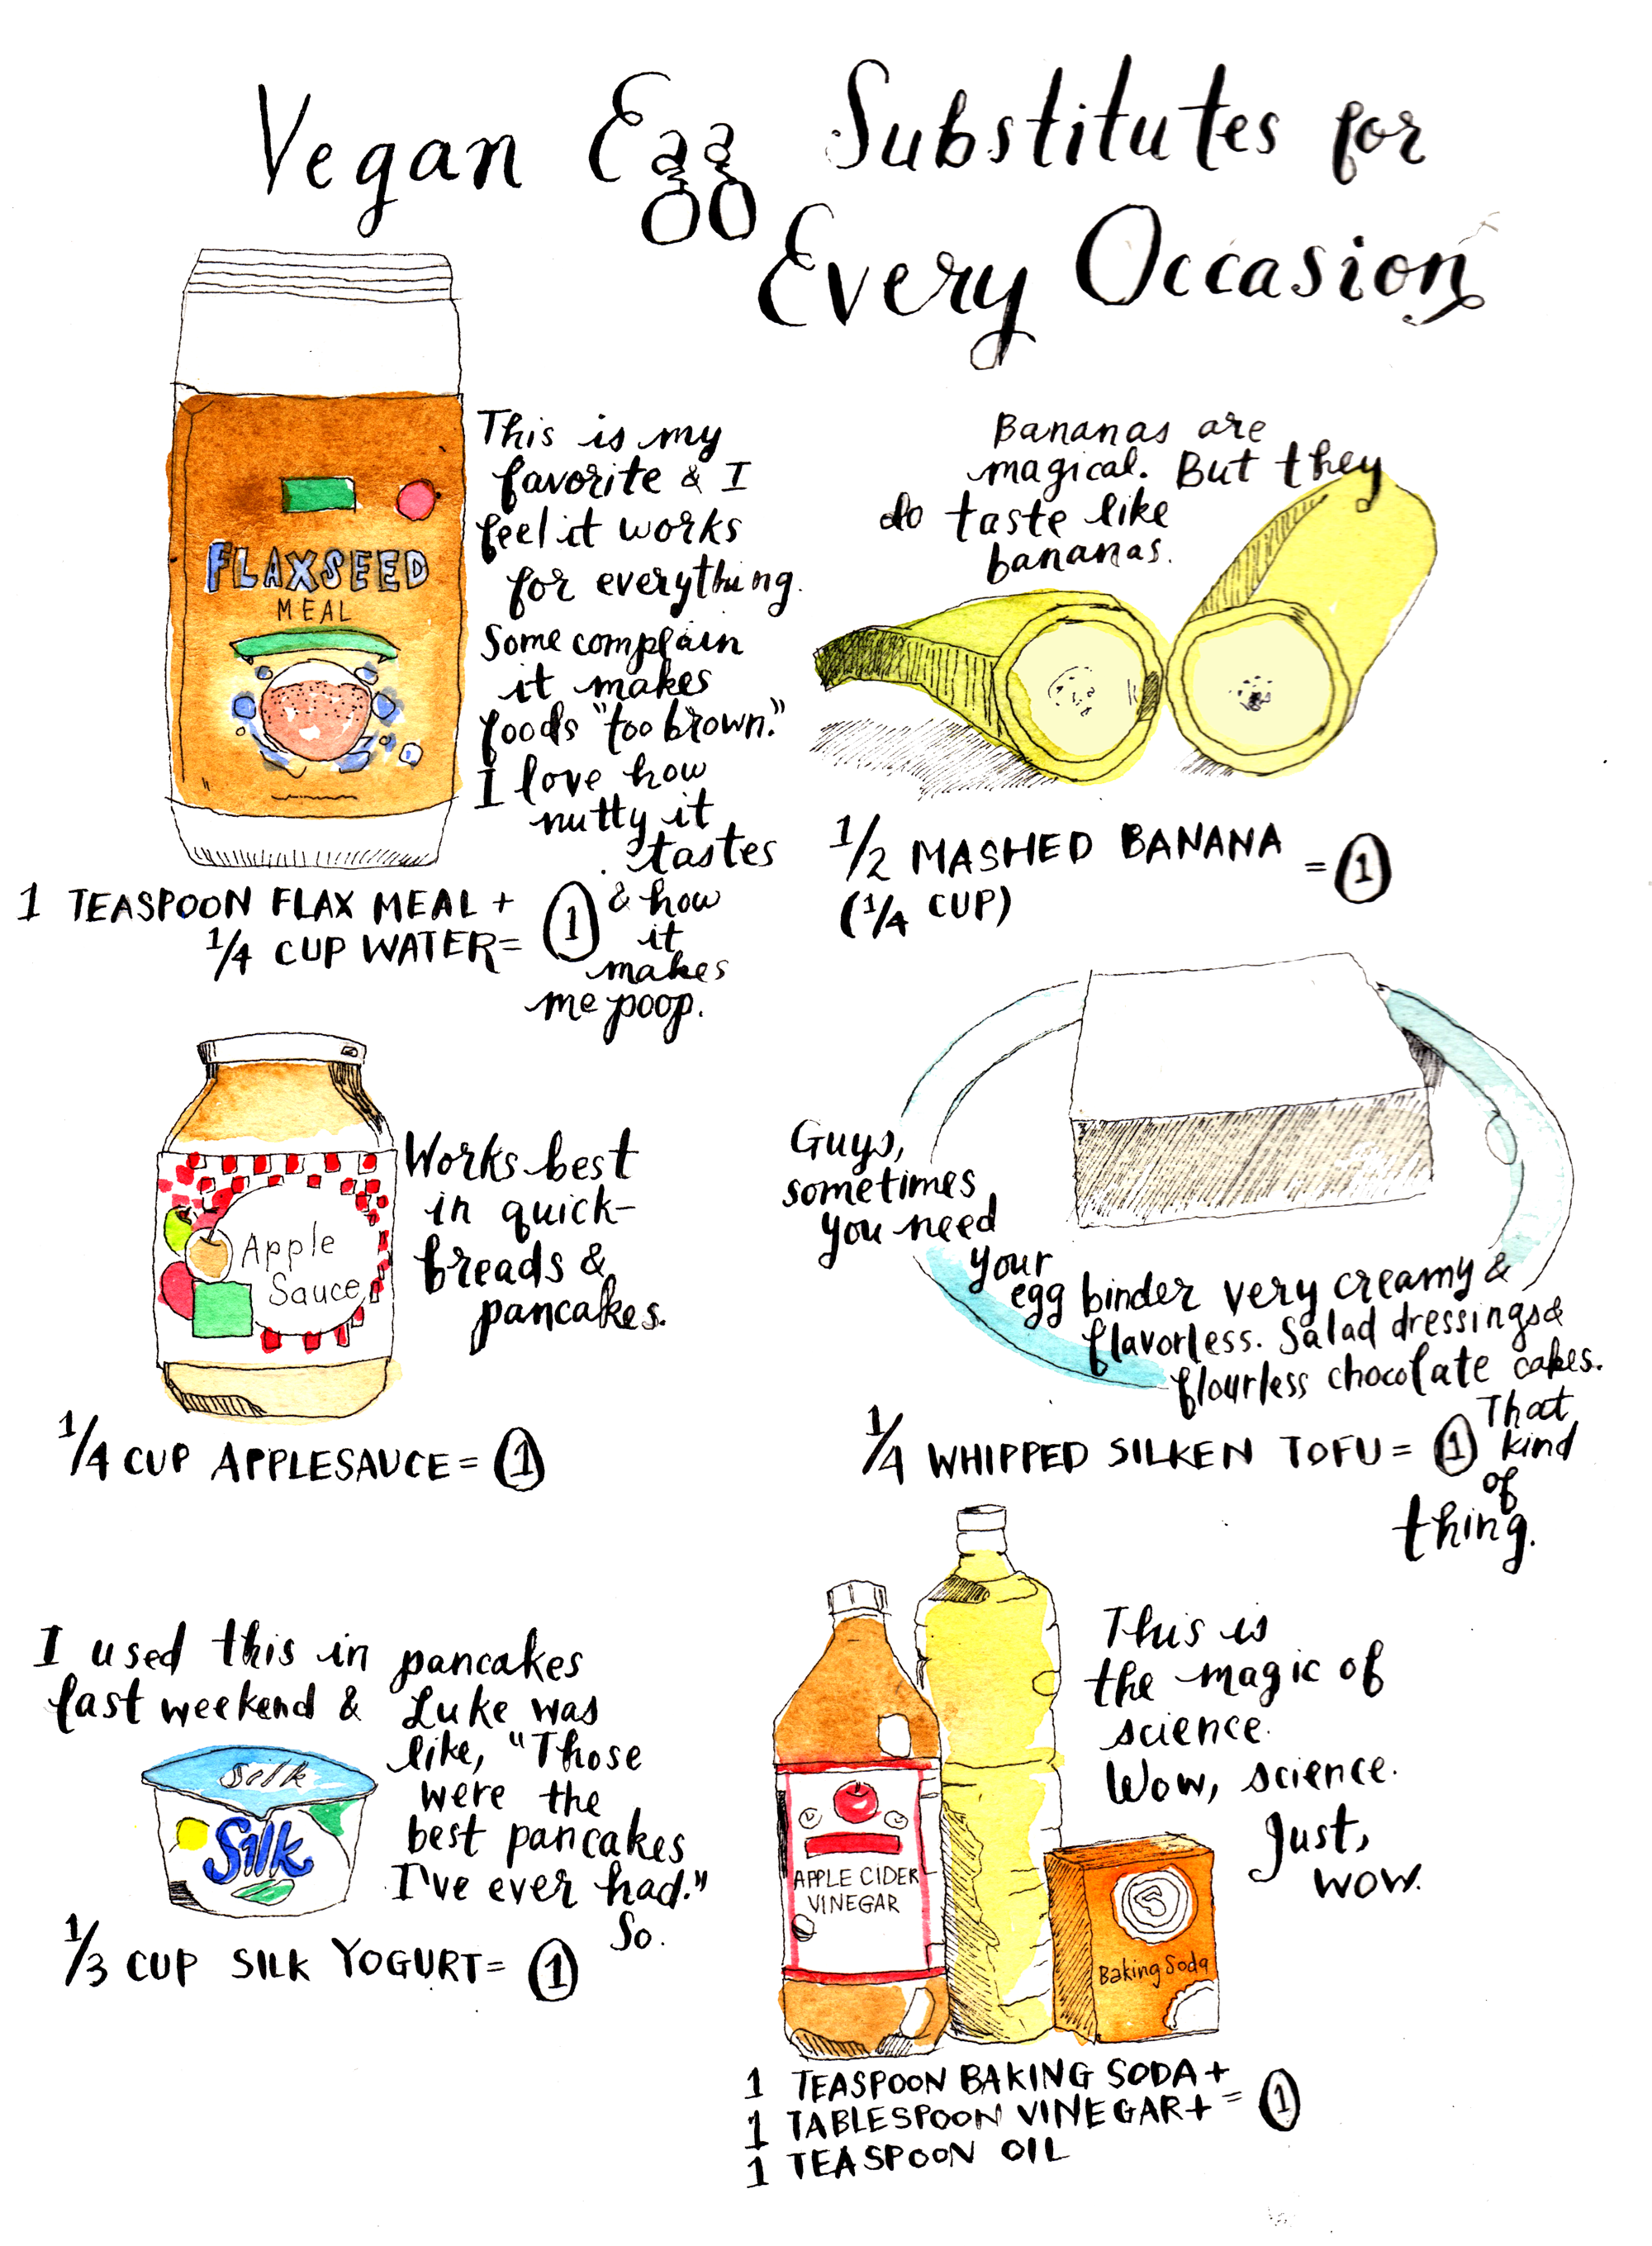 Vegan Egg Substitutes for
Every Occasion
FLAXSEED
MEAL
This is my
favorite & I
feel it works
for everything.
Some complain
it makes
foods "too brown."
I love how
nutty it
tastes
& how
it
makes
me poop.
1 TEASPOON FLAX MEAL +
1/4 CUP WATER= 1
Bananas are
magical. But they
do taste like
bananas.
1/2 MASHED BANANA = 1
(1/4 CUP)
Apple
Sauce
Works best
in quick-
breads &
pancakes.
1/4 CUP APPLESAUCE= 1
Guys,
sometimes
you need
your
egg binder very creamy &
flavorless. Salad dressings &
flourless chocolate cakes.
That
kind
of
thing.
1/4 WHIPPED SILKEN TOFU= 1
I used this in pancakes
last weekend & Luke was
like, "Those
were the
best pancakes
I've ever had."
So.
Silk
Silk
1/3 CUP SILK YOGURT= 1
This is
the magic of
science.
Wow, science.
Just,
wow.
APPLE CIDER
VINEGAR
Baking Soda
1 TEASPOON BAKING SODA+
1 TABLESPOON VINEGAR+ = 1
1 TEASPOON OIL